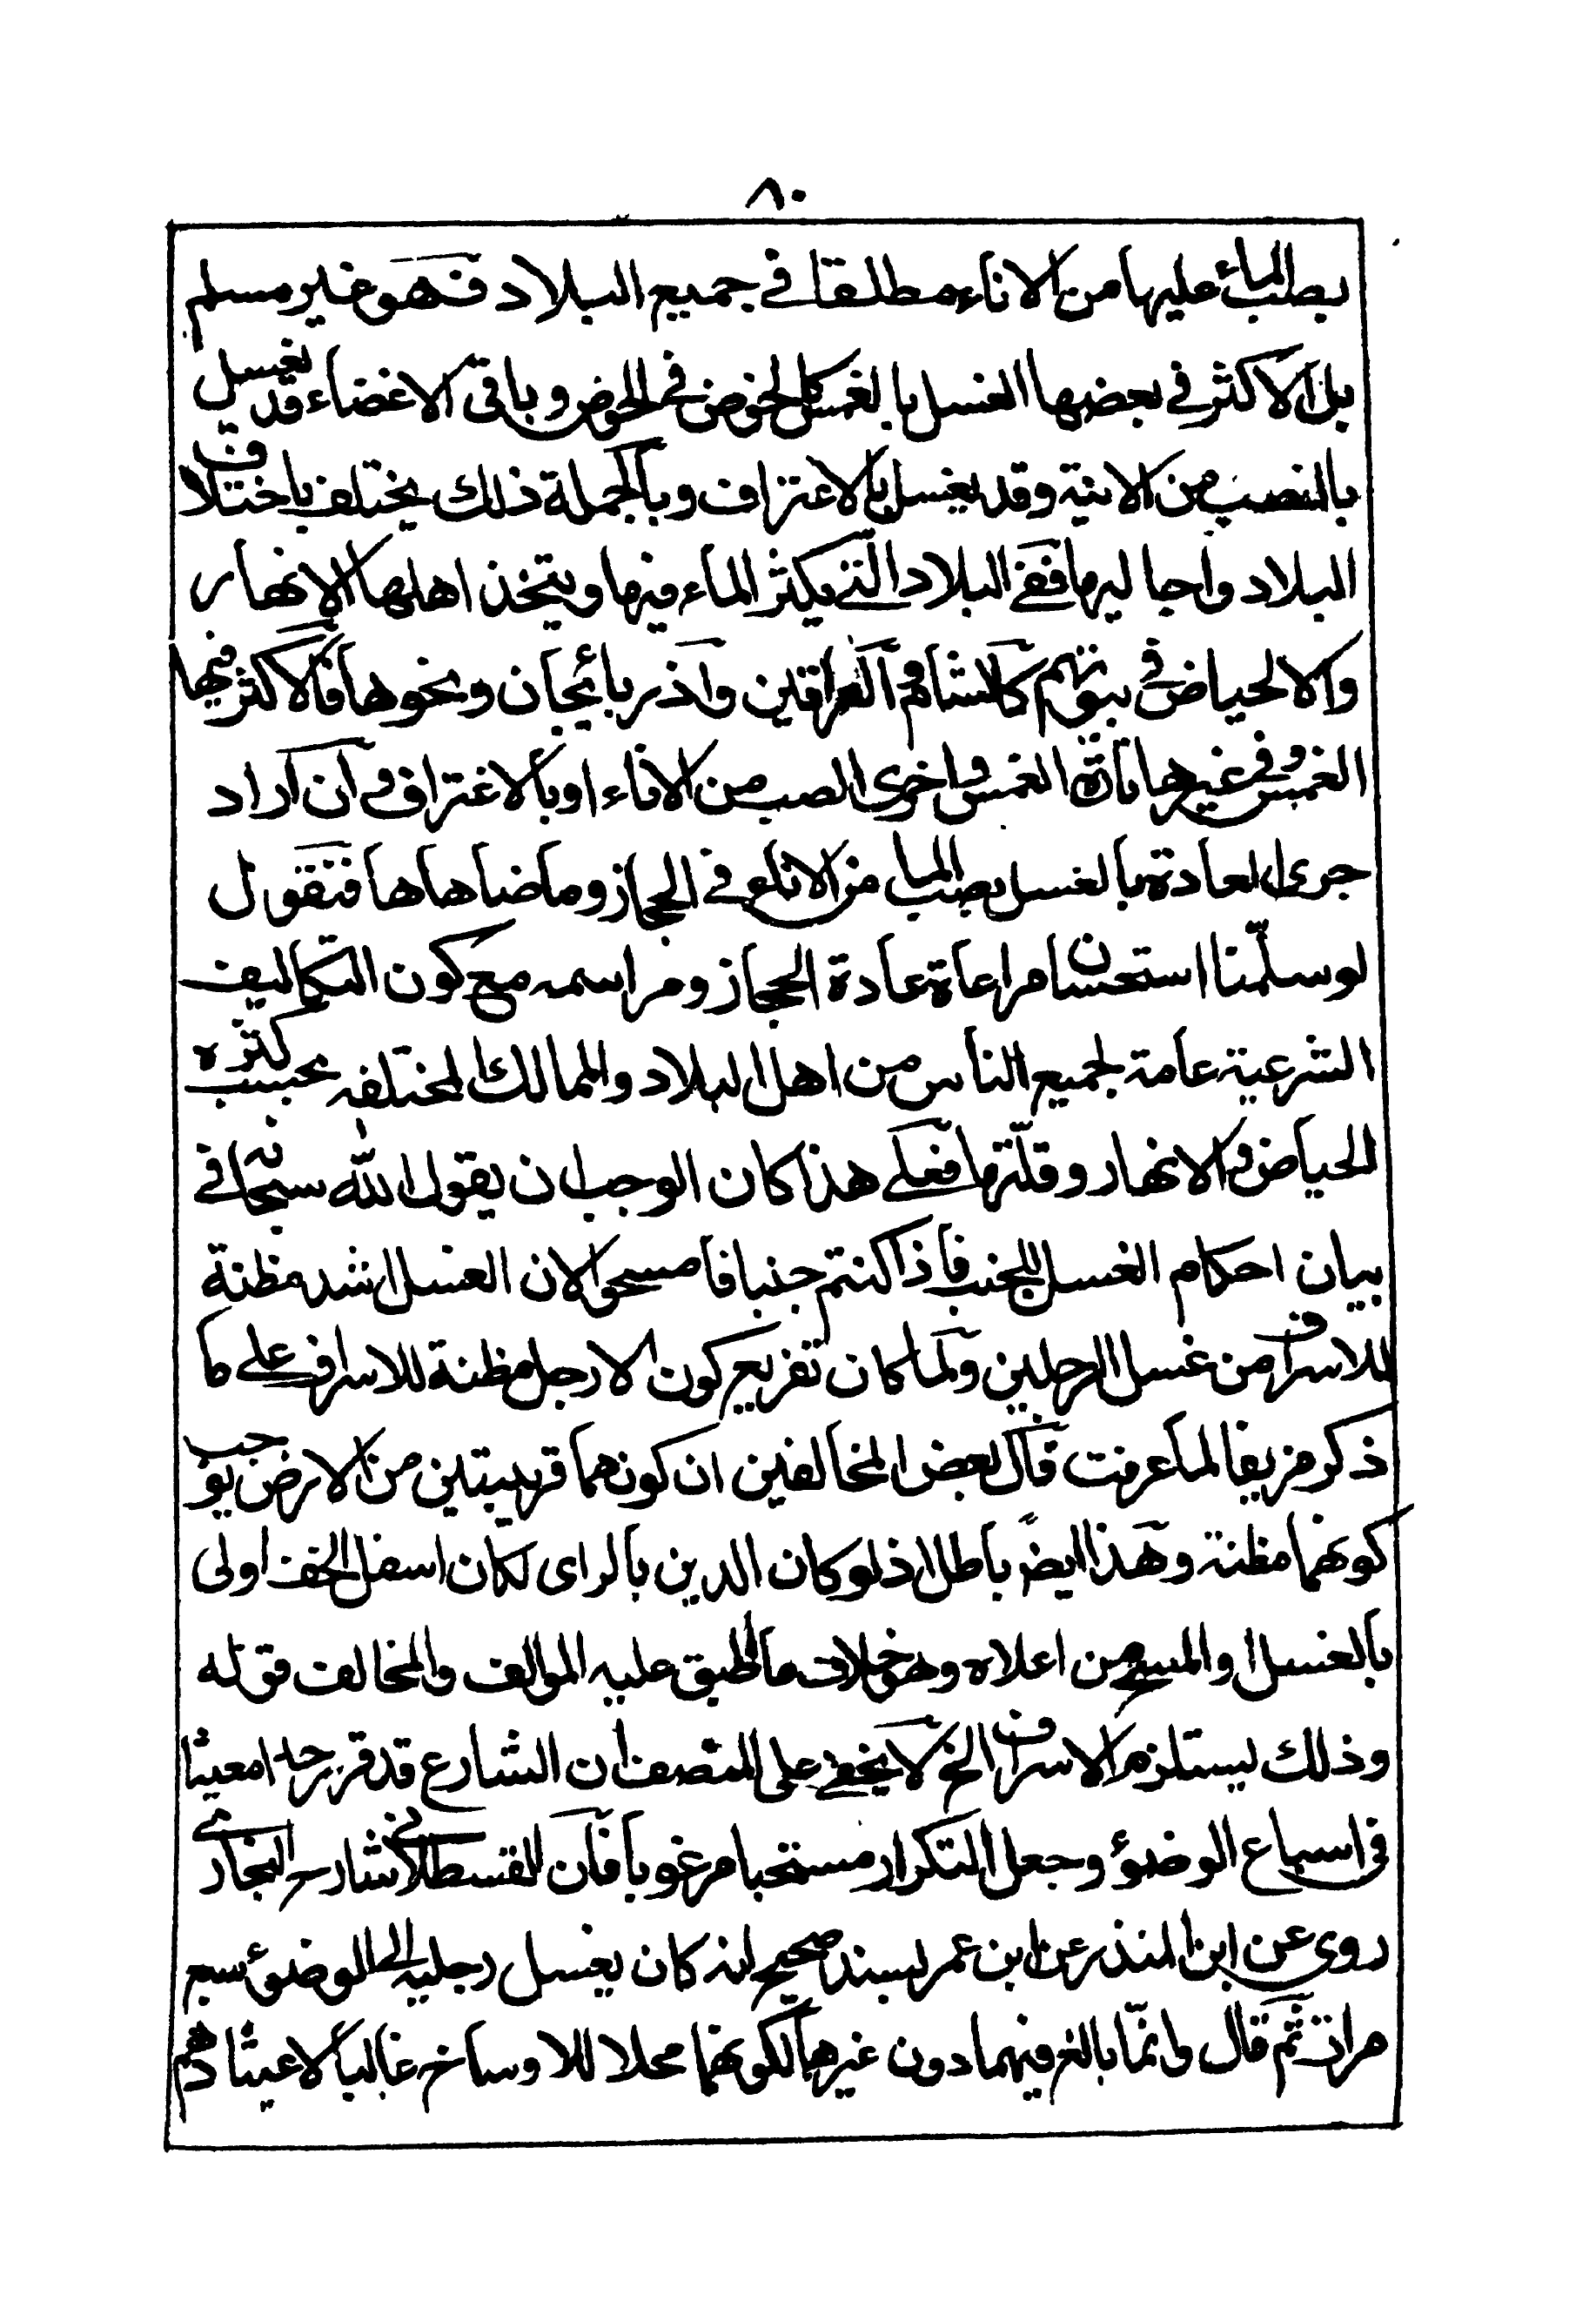 ٨٠
بصب الماء عليها من الاناء مطلقا في جميع البلاد فهو غير مسلم
بل الاكثر في بعضها الغسل بالغمس كالخوض في الحوض وباقى الاغضاء قد يغسل
بالنصب من الانية وقد يغسل بالاعتراف وبالجملة ذلك يختلف باختلاف
البلاد واحبا ليها ففي البلاد التي يكثر الماء فيها ويتخذ اهلها الانهار
والالحياض في بيوتهم كالشام والعراقين واذربائيجان ونحوها فالاكثر فيها
الغمس وفي غيرها تارة الغمس واخرى الصب من الاناء او بالاغتراف وان اراد
جرى العادة بالغسل بصب الماء من الاناء في الحجاز وما ضاهاها فنقول
لو سلّمنا استحسان مراعاة عادة الحجاز ومراسمه مع كون التكاليف
الشرعية عامة لجميع الناس من اهل البلاد والممالك المختلفه بحسب كثره
الحياض والانهار وقلّتها فعلى هذا كان الوجب ان يقول الله سبحانه في
بيان احكام الغسل للجنب فاذا كنتم جنبا فامسحوا لان الغسل اشد مظنة
للاسراف من غسل الرجلين ولما كان تفريع كون الارجل مظنة للاسراف على ما
ذكر مزيفا لما عرفت قال بعض المخالفين ان كونهما قريبتين من الارض يوجب
كونهما مظنة وهذا ايضً باطل اذ لو كان الدين بالراى لكان اسفل الخف اولى
بالغسل او المسح من اعلاه وهو خلاف ما اطبق عليه الموالف والمخالف قوله
وذلك يستلزم الاسراف الخ لا يخفى على المنصف ان الشارع قد قرر حدا معينا
في اسباغ الوضوء وجعل التكرار مستحبا مرغوبا فان القسطلاني شارح البخاري
روى عن ابن المنذر عن ابن عمر بسند صحيح انه كان يغسل رجليه في الوضوء سبع
مرات ثم قال وانّما بالغ فيهما دون غيرهما لكونهما محلا للاوساخ غالبا لاعتيادهم